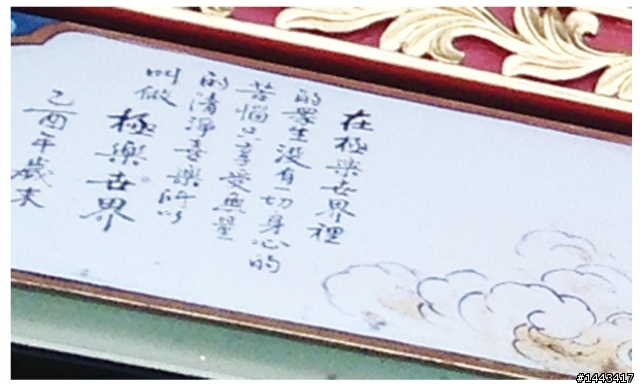 在極樂世界裡
的眾生沒有一切身心的
苦惱只享受無量
的清淨喜樂所以
叫做
極樂世界
乙酉年歲末
#1443417